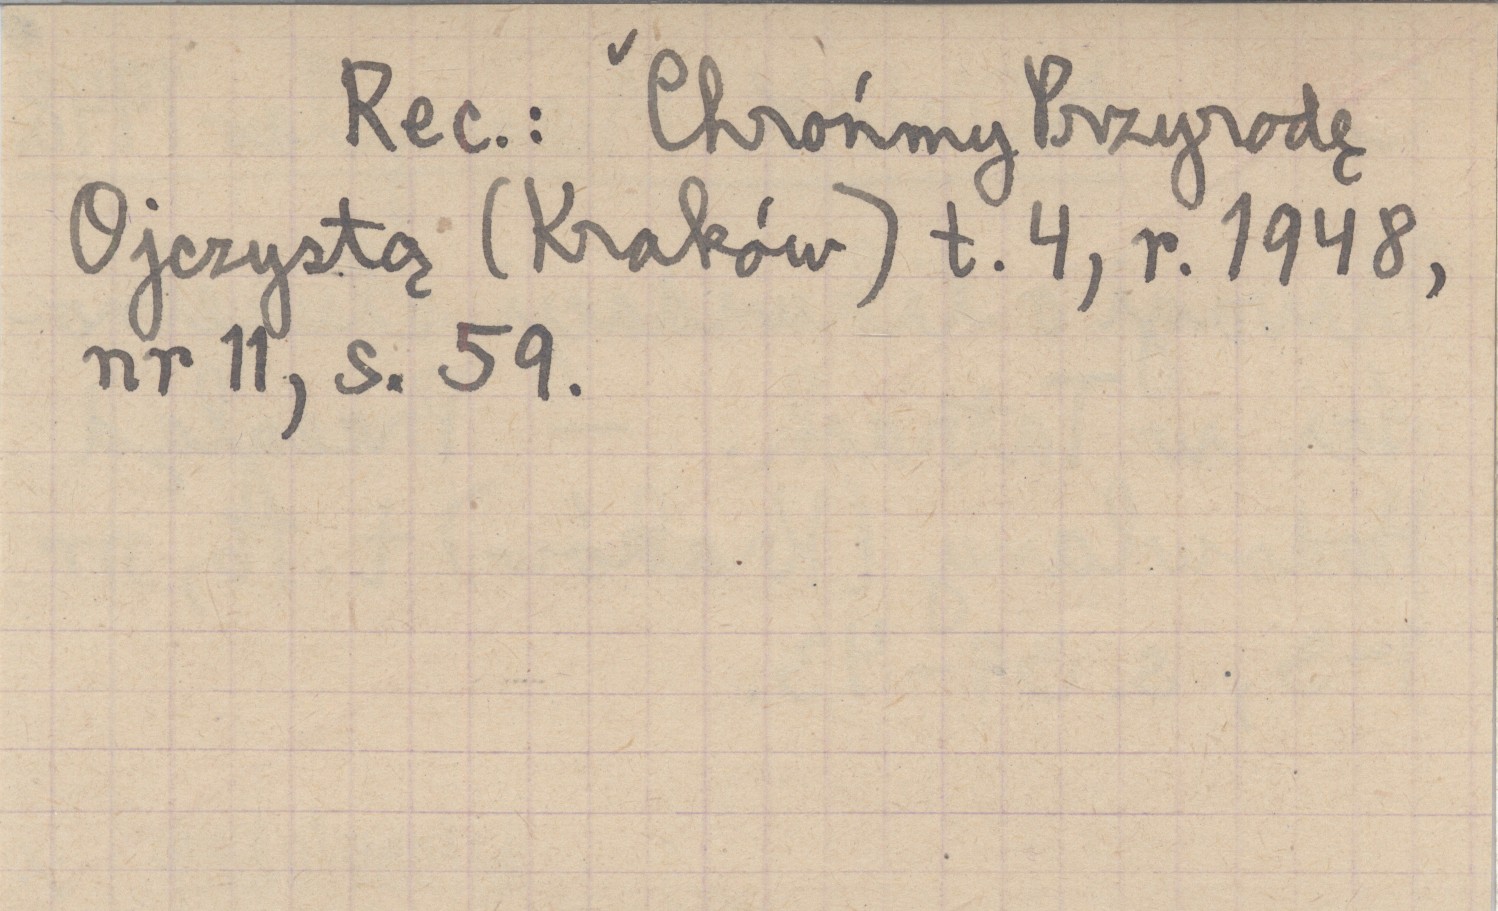 Rec.: ✓Chrońmy Przyrodę
Ojczystą (Kraków) t. 4, r. 1948,
nr 11, s. 59.